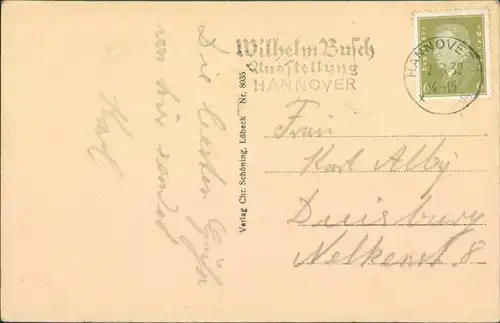 Die besten Grüße
von hier sendet
Karl
Verlag Chr. Schöning, Lübeck Nr. 8035
Wilhelm Busch
Ausstellung
HANNOVER
HANNOVER
32
Frau
Karl Alby
Duisburg
Nelkenst 8